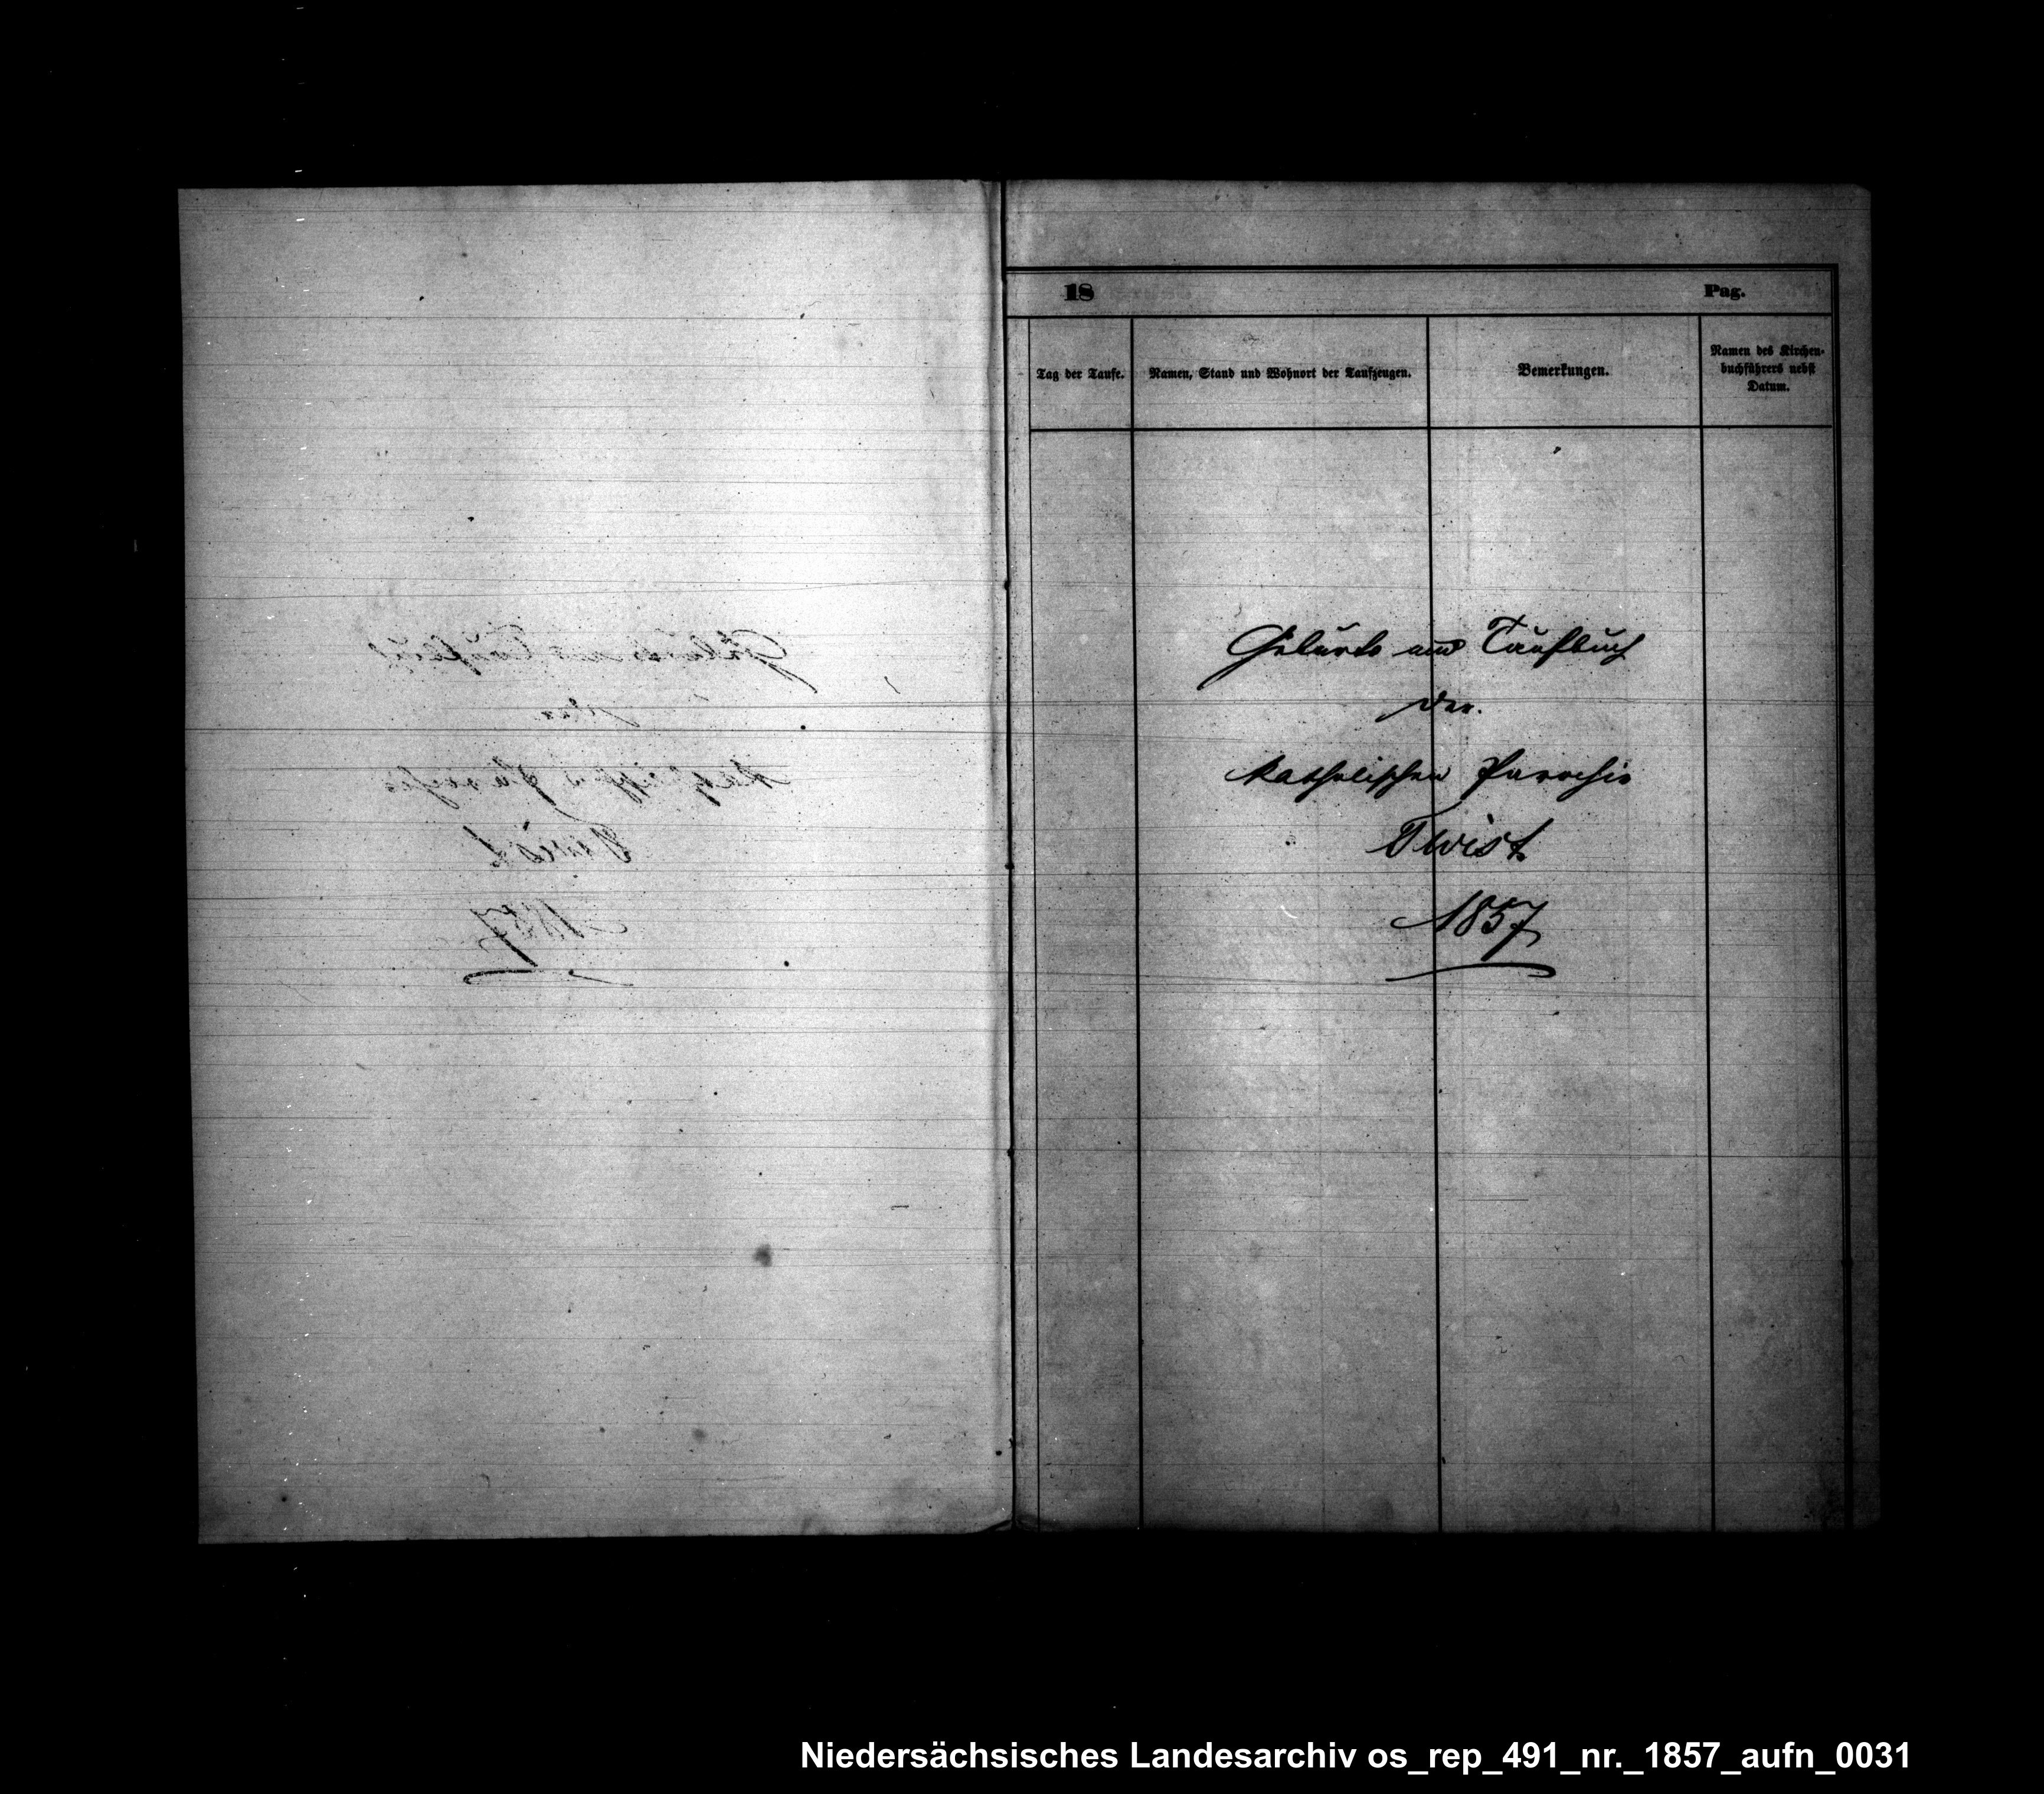 18 Pag.
Tag der Taufe. Namen, Stand und Wohnort der Taufzeugen. Bemerkungen. Namen des Kirchen-
buchführers nebst
Datum.
Geburts und Taufbuch
der
katholischen Parochie
Twist
1857
Niedersächsisches Landesarchiv os_rep_491_nr._1857_aufn_0031